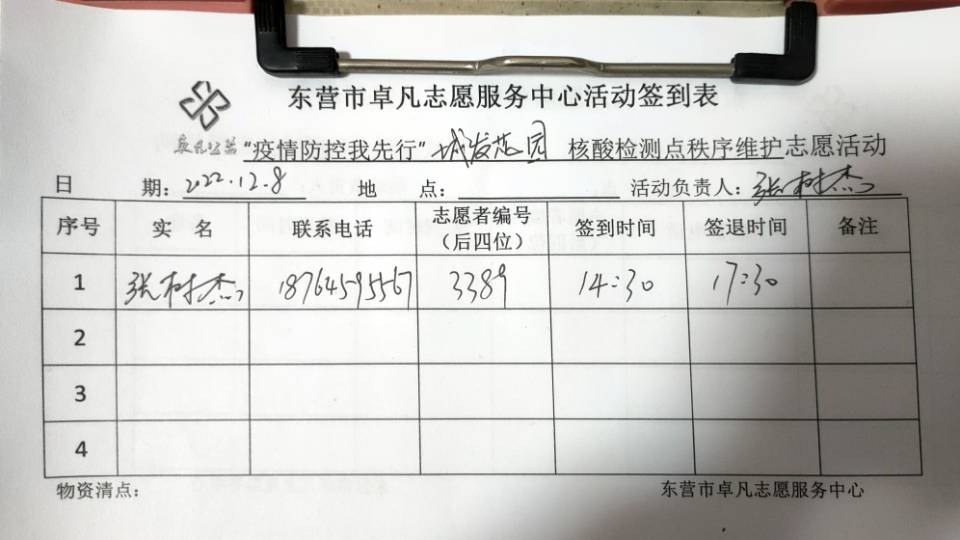 东营市卓凡志愿服务中心活动签到表
卓凡公益 "疫情防控我先行" 城发花园 核酸检测点秩序维护志愿活动
日 期：2022.12.8 地 点： 活动负责人：张树杰
序号 实 名 联系电话 志愿者编号（后四位） 签到时间 签退时间 备注
1 张树杰 18764595567 3389 14:30 17:30
2
3
4
物资清点： 东营市卓凡志愿服务中心